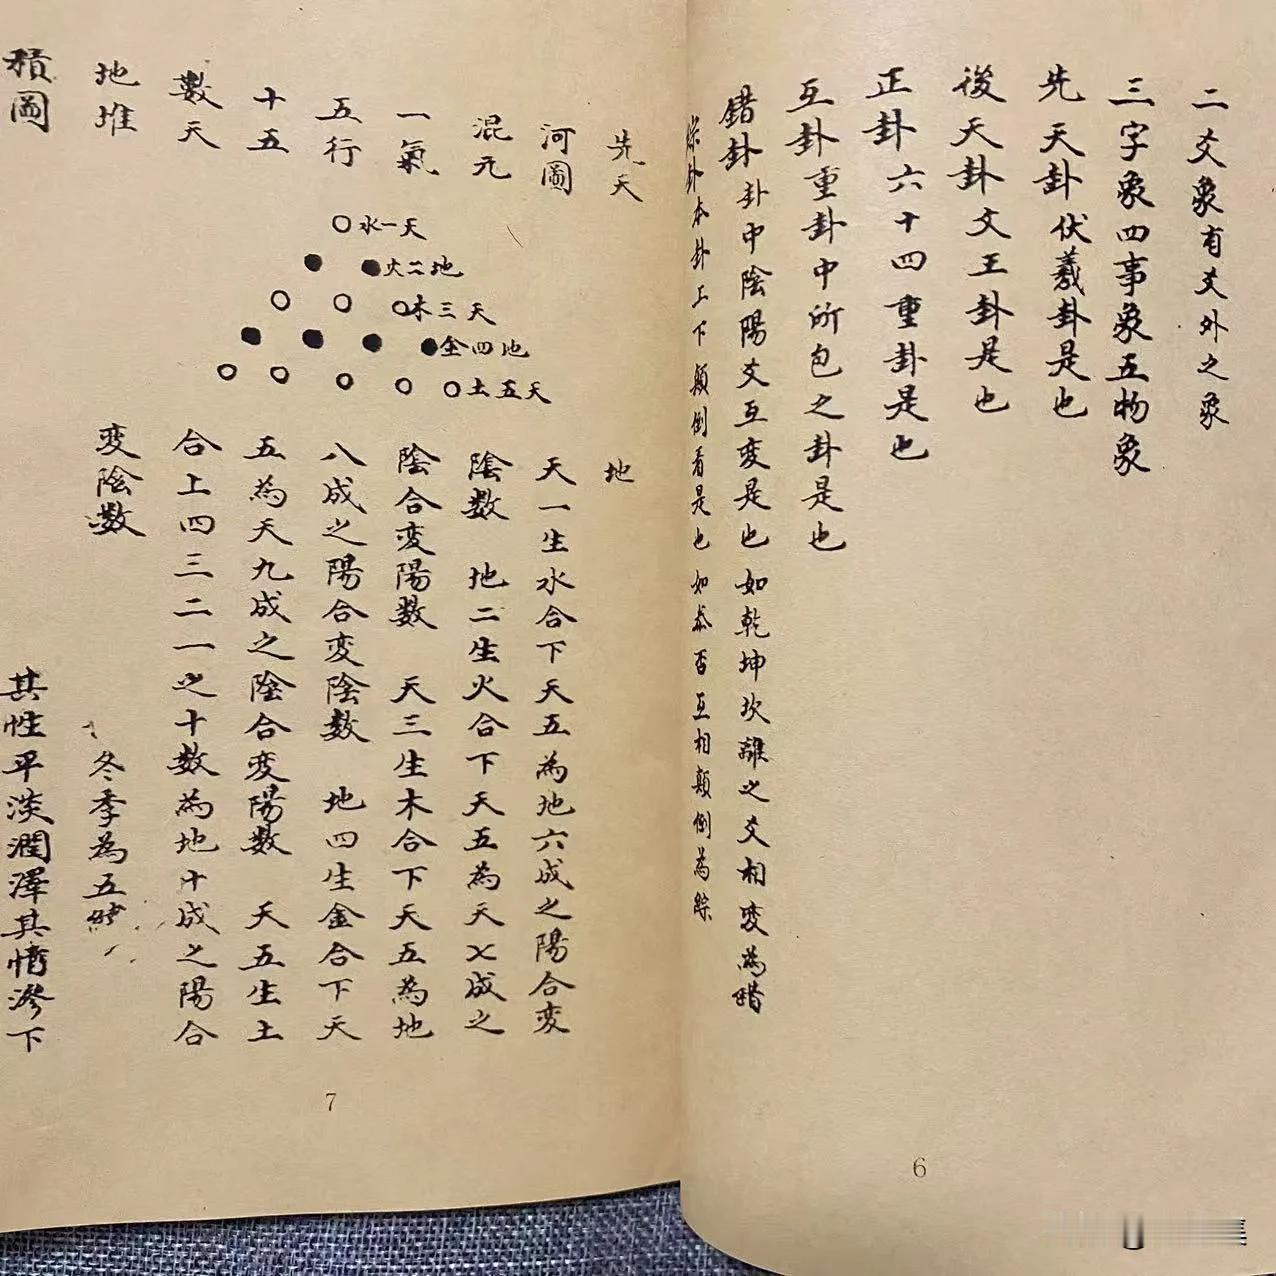 二爻象有爻外之象
三字象四事象五物象
先天卦伏羲卦是也
後天卦文王卦是也
正卦六十四重卦是也
互卦重卦中所包之卦是也
錯卦卦中陰陽爻互変是也如乾坤坎離之爻相変為錯
綜卦本卦上下顛倒看是也如泰否互相顛倒為綜
6
先天
河圖
混元
一氣
五行
十五
數天
地堆
積圖
水一天
火二地
木三天
金四地
土五天
地
天一生水合下天五為地六成之陽合変
陰数 地二生火合下天五為天七成之
陰合変陽数 天三生木合下天五為地
八成之陽合変陰数 地四生金合下天
五為天九成之陰合変陽数 天五生土
合上四三二一之十数為地十成之陽合
変陰数
冬季為五
其性平淡潤澤其情滲下
7